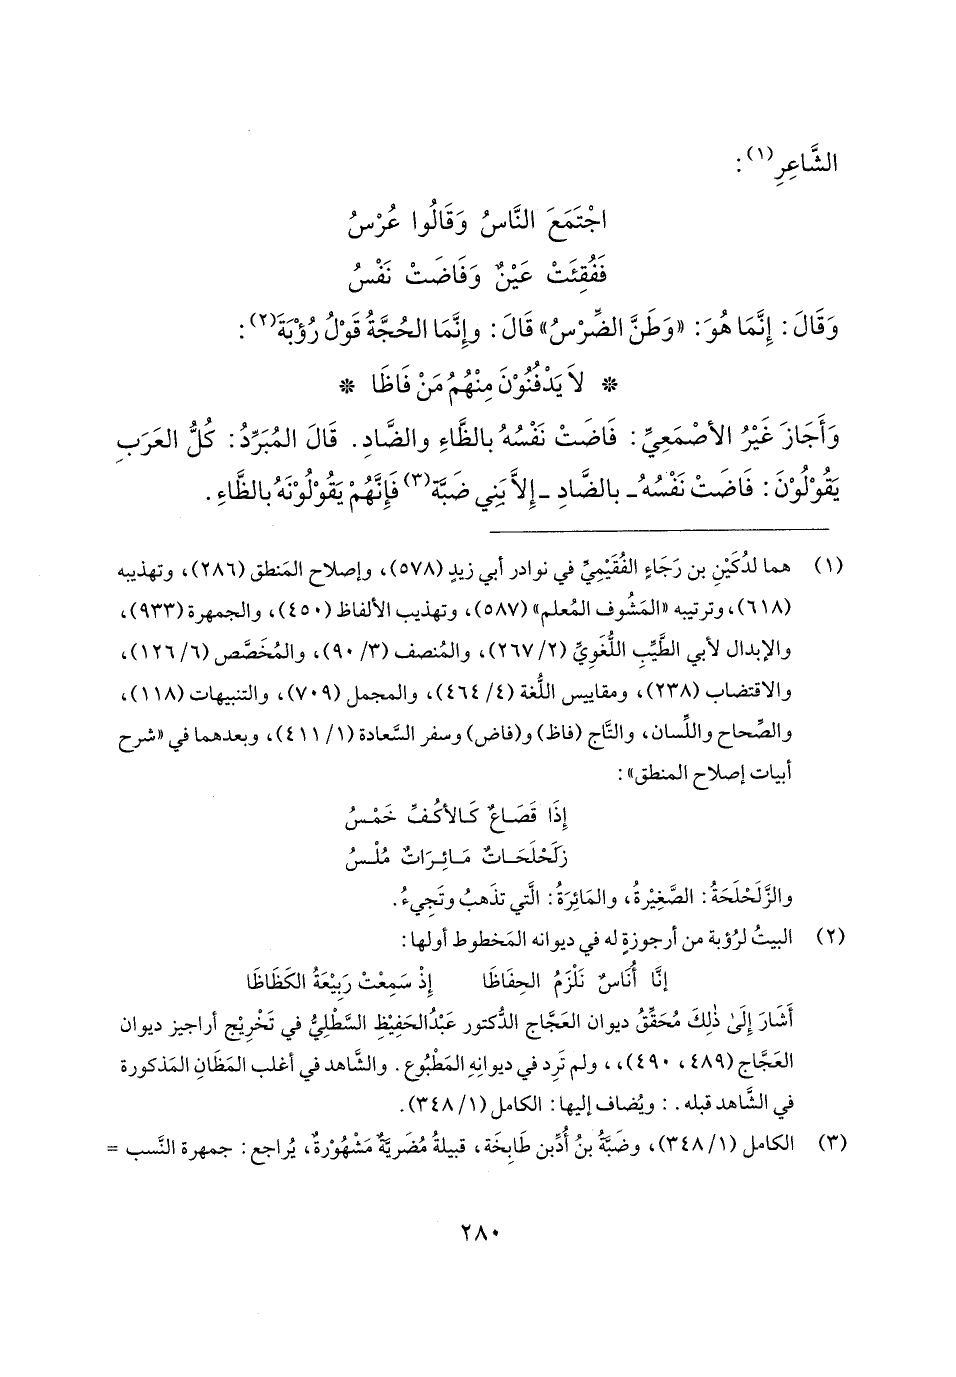 الشَّاعِرِ(١):
اجْتَمَعَ النَّاسُ وَقَالُوا عُرْسُ
فَفُقِئَتْ عَيْنٌ وَفَاضَتْ نَفْسُ
وَقَالَ: إِنَّمَا هُوَ: «وَطَنَّ الضِّرْسُ» قَالَ: وإِنَّمَا الحُجَّةُ قَوْلُ رُؤْبَةَ(٢):
* لاَ يَدْفُنُوْنَ مِنْهُمُ مَنْ فَاظَا *
وَأَجَازَ غَيْرُ الأصْمَعِيِّ: فَاضَتْ نَفْسُهُ بالظَّاءِ والضَّادِ. قَالَ المُبَرِّدُ: كُلُّ العَرَبِ
يَقُوْلُوْنَ: فَاضَتْ نَفْسُهُ ـ بالضَّادِ ـ إلاَّ بَنِي ضَبَّة(٣) فَإِنَّهُمْ يَقُوْلُوْنَهُ بالظَّاءِ.
(١) هما لدُكَيْنِ بن رَجَاءٍ الفُقَيْمِيِّ في نوادر أبي زيدٍ (٥٧٨)، وإصلاح المَنطق (٢٨٦)، وتهذيبه
(٦١٨)، وترتيبه «المَشُوف المُعلم» (٥٨٧)، وتهذيب الألفاظ (٤٥٠)، والجمهرة (٩٣٣)،
والإبدال لأبي الطَّيِّبِ اللُّغَوِيِّ (٢/ ٢٦٧)، والمُنصف (٣/ ٩٠)، والمُخَصَّص (٦/ ١٢٦)،
والاقتضاب (٢٣٨)، ومقاييس اللُّغة (٤/ ٤٦٤)، والمجمل (٧٠٩)، والتنبيهات (١١٨)،
والصِّحاح واللِّسان، والتَّاج (فاظ) و(فاض) وسفر السَّعادة (١/ ٤١١)، وبعدهما في «شرح
أبيات إصلاح المنطق»:
إِذَا قَصَاعٌ كَالأكُفِّ خَمْسُ
زَلَحْلَحَاتٌ مَائِرَاتٌ مُلْسُ
والزَّلَحْلَحَةُ: الصَّغِيْرةُ، والمَائِرَةُ: الَّتي تذهبُ وتَجِيءُ.
(٢) البيتُ لرُؤبة من أرجوزةٍ له في ديوانه المَخطوط أولها:
إنَّا أُنَاسٌ نَلْزَمُ الحِفَاظَا إِذْ سَمِعْتْ رَبِيْعَةُ الكَظَاظَا
أَشَارَ إِلَىٰ ذٰلِكَ مُحَقِّقُ ديوان العَجَّاج الدُّكتور عَبْدُالحَفِيْظِ السَّطْلِيُّ في تَخْرِيْج أراجيز ديوان
العَجَّاج (٤٨٩، ٤٩٠)،، ولم تَرِد في ديوانِهِ المَطْبُوع. والشَّاهد في أغلب المَظَانِ المَذكورة
في الشَّاهد قبله. : ويُضاف إليها: الكامل (١/ ٣٤٨).
(٣) الكامل (١/ ٣٤٨)، وضَبَّةُ بنُ أُدِّبن طَابِخَة، قبيلةُ مُضَريَّةٌ مَشْهُوْرةٌ، يُراجع: جمهرة النَّسب =
٢٨٠